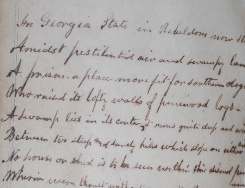 In Georgia State in Rebeldom now
Amidst pestilential air and swampy
A prison: a place more fit for southern dogs
Who raised its lofty walls of pinewood logs -
A swamp lies in its centre quite deep and
Between two steep and sandy hills which slope on either
No house or shed is to be seen within this
Wherein were thousands